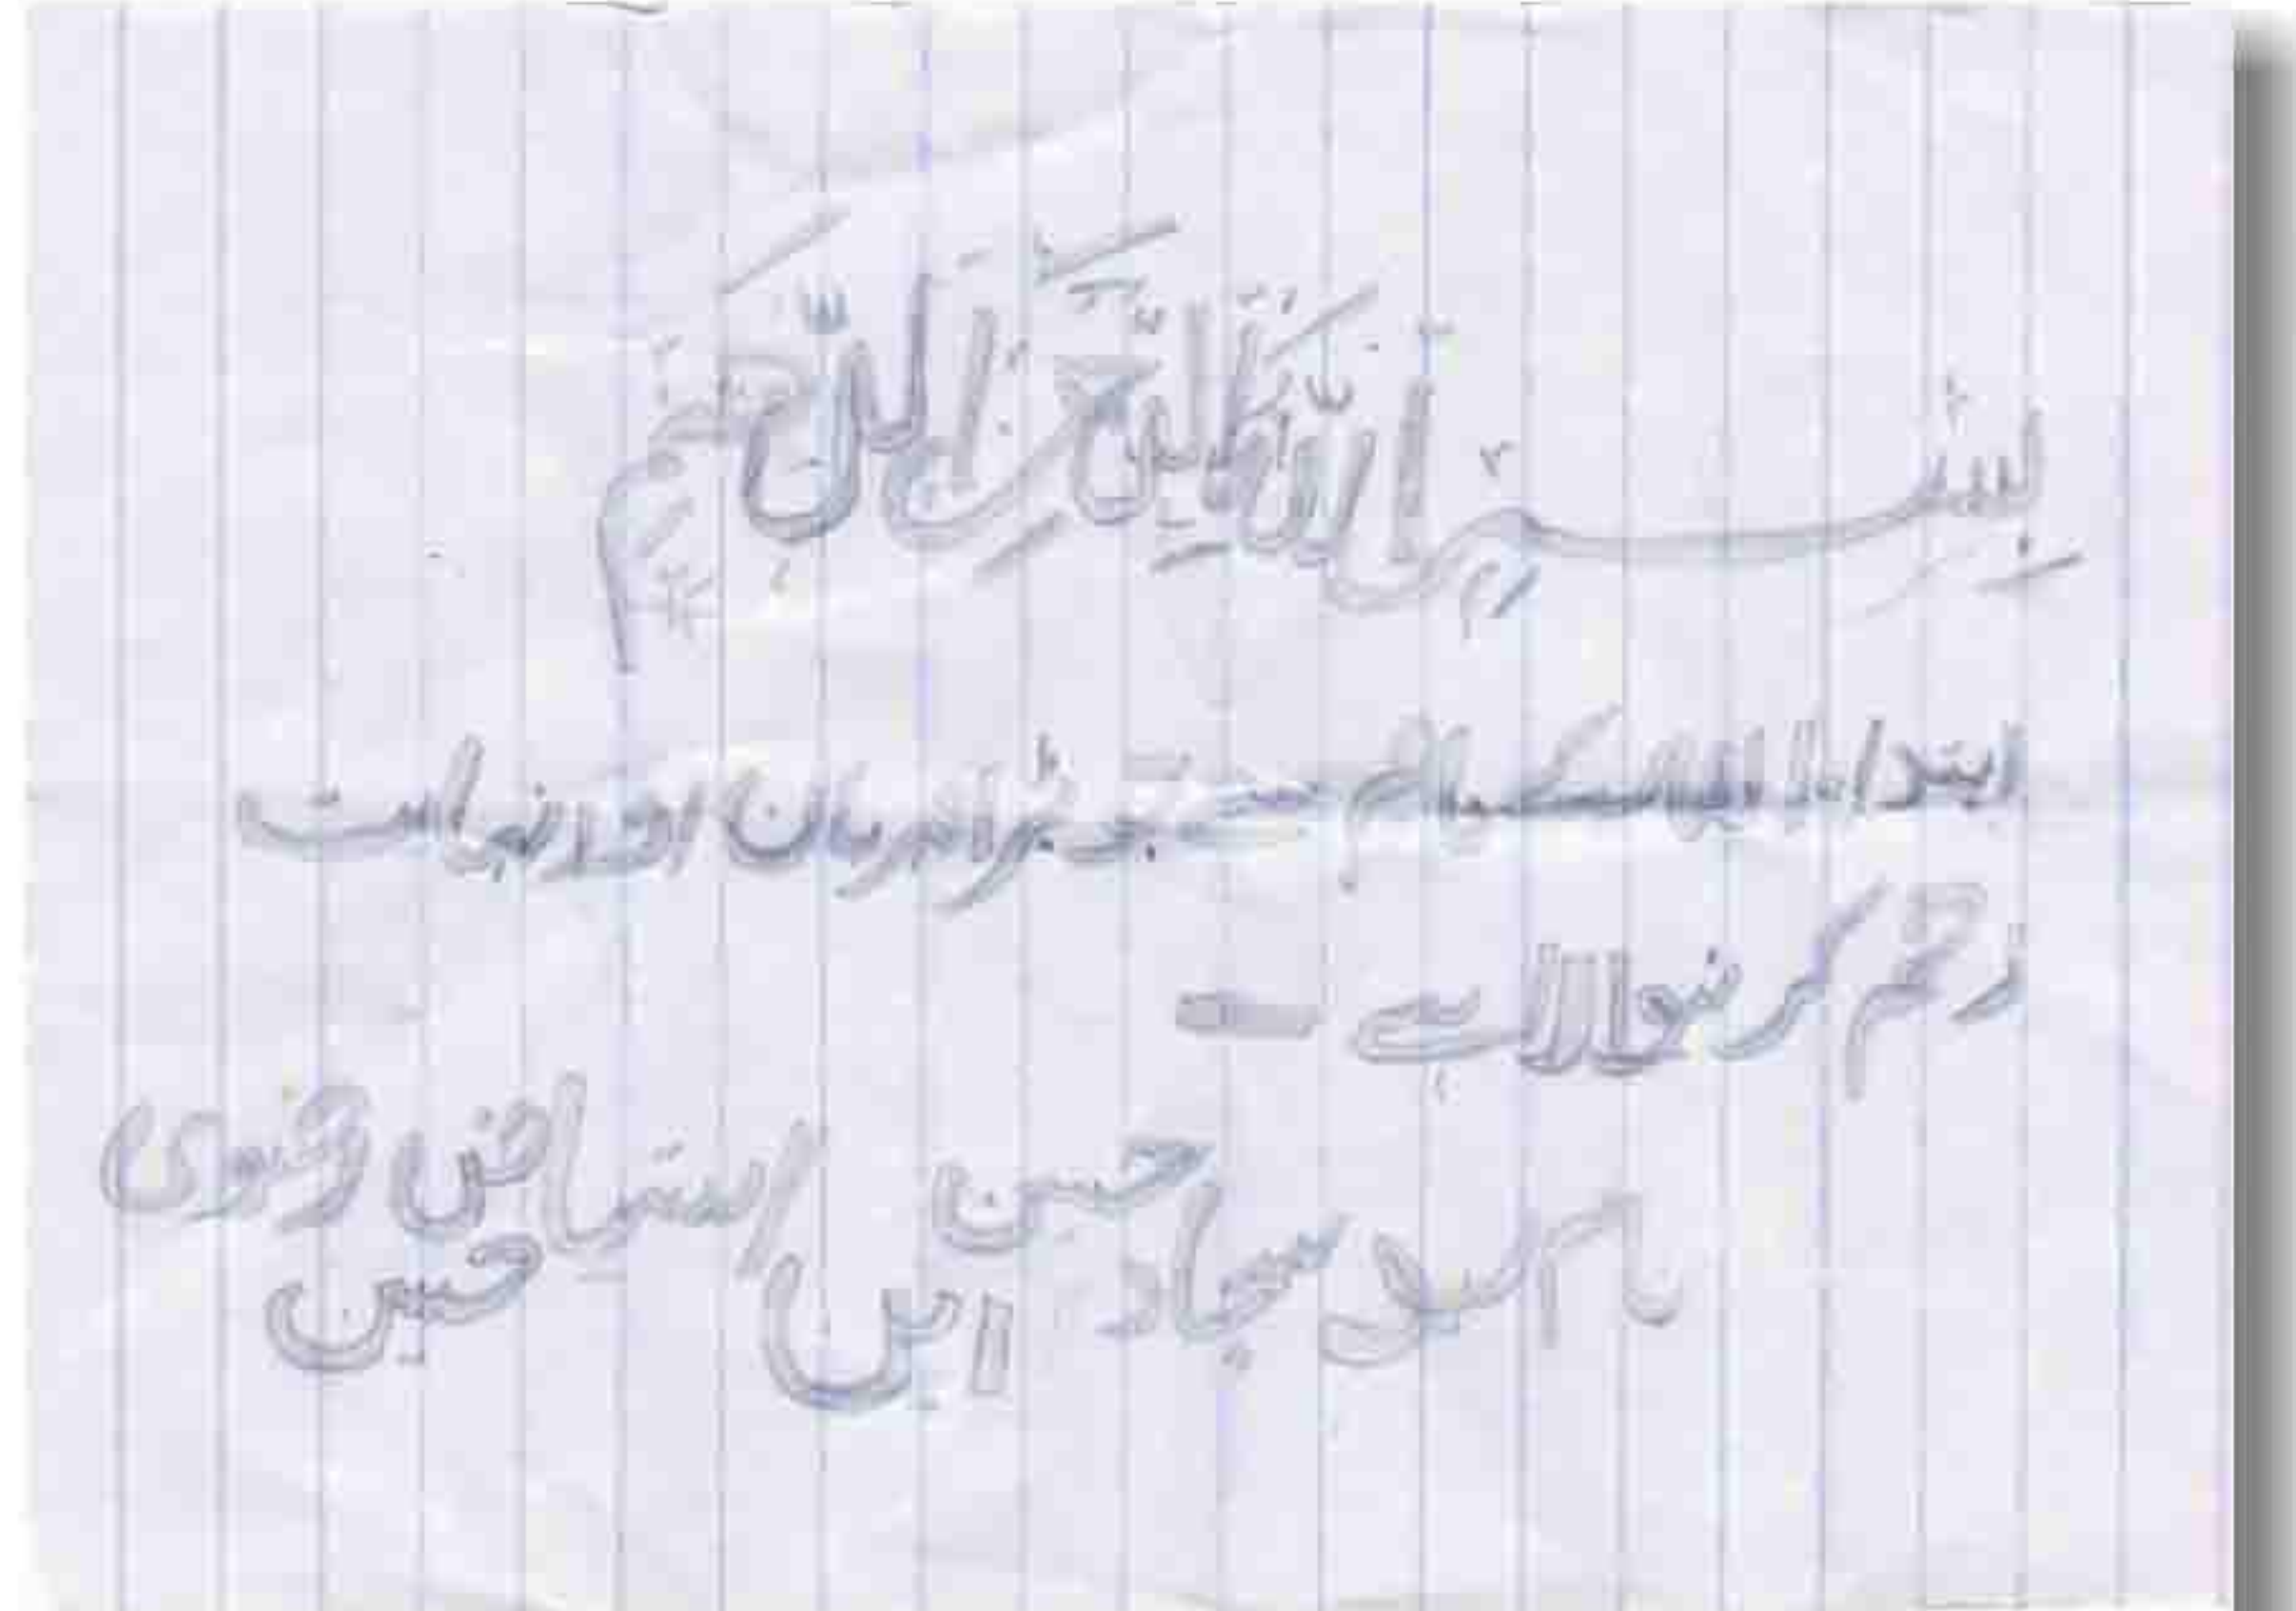 بِسْمِ اللّٰهِ الرَّحْمٰنِ الرَّحِيْمِ
ابتدا اللہ کے نام سے جو بڑا مہربان اور نہایت
رحم کرنیوالا ہے ـ
سجاد حسن ابن حسین رضوی